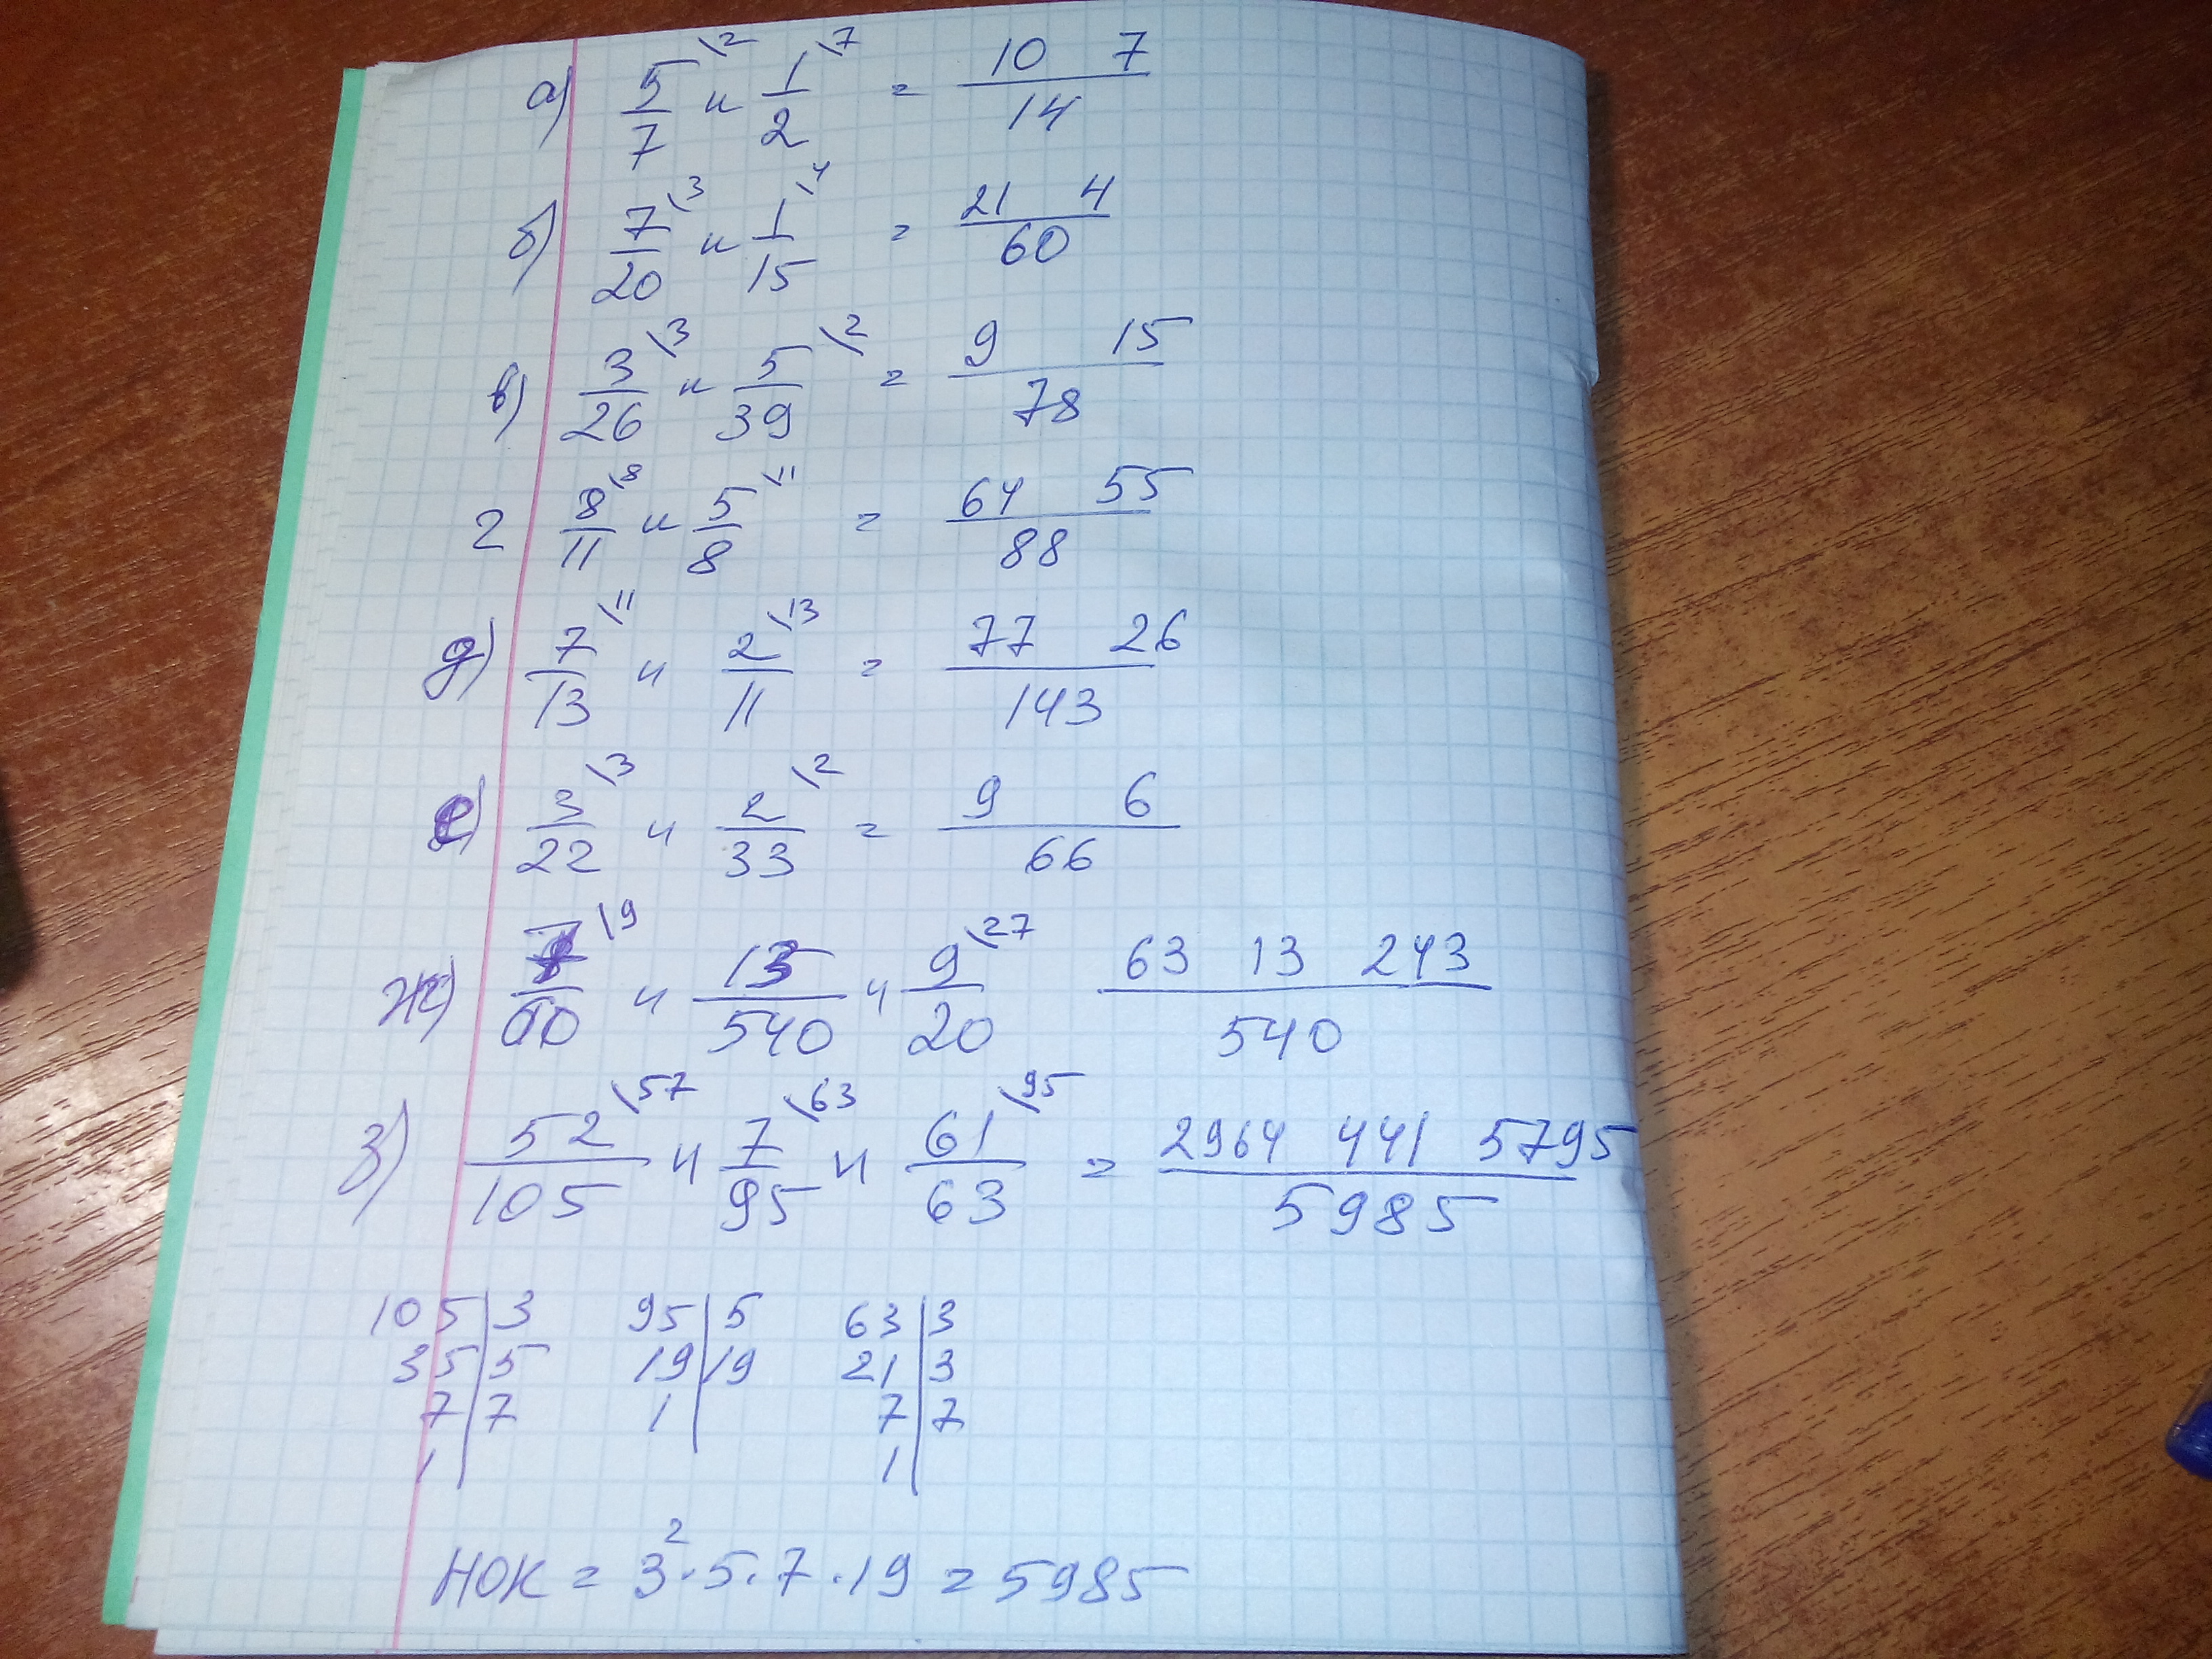 а) 5/7 \2 и 1/2 \7 = 10 7 / 14
б) 7/20 \3 и 1/15 \4 = 21 4 / 60
в) 3/26 \3 и 5/39 \2 = 9 15 / 78
г 8/11 \8 и 5/8 \11 = 64 55 / 88
д) 7/13 \11 и 2/11 \13 = 77 26 / 143
е) 3/22 \3 и 2/33 \2 = 9 6 / 66
ж) 7/60 \9 и 13/540 и 9/20 \27 63 13 243 / 540
з) 52/105 \57 и 7/95 \63 и 61/63 \95 = 2964 441 5795 / 5985
105|3 95|5 63|3
35|5 19|19 21|3
7|7 1| 7|7
1| 1|
НОК = 3²·5·7·19 = 5985